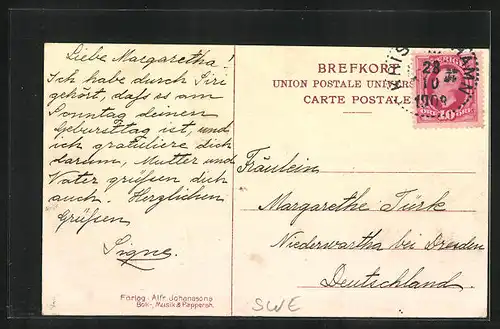 Liebe Margaretha!
Ich habe durch Siri
gehört, dass es am
Sonntag deinen
Geburtstag ist, und
ich gratuliere dich
darum, Mutter und
Vater grüssen dich
auch. Herzlichen
Grüssen
Signe.
Förlag: Alfr. Johanssons
Bok-, Musik & Pappersh.
BREFKORT
UNION POSTALE UNIVERS
CARTE POSTALE
KRIS HAMN
23
10
1908
10 ÖRE
Fräulein
Margarethe Türk
Niederwartha bei Dresden
Deutschland.
SWE